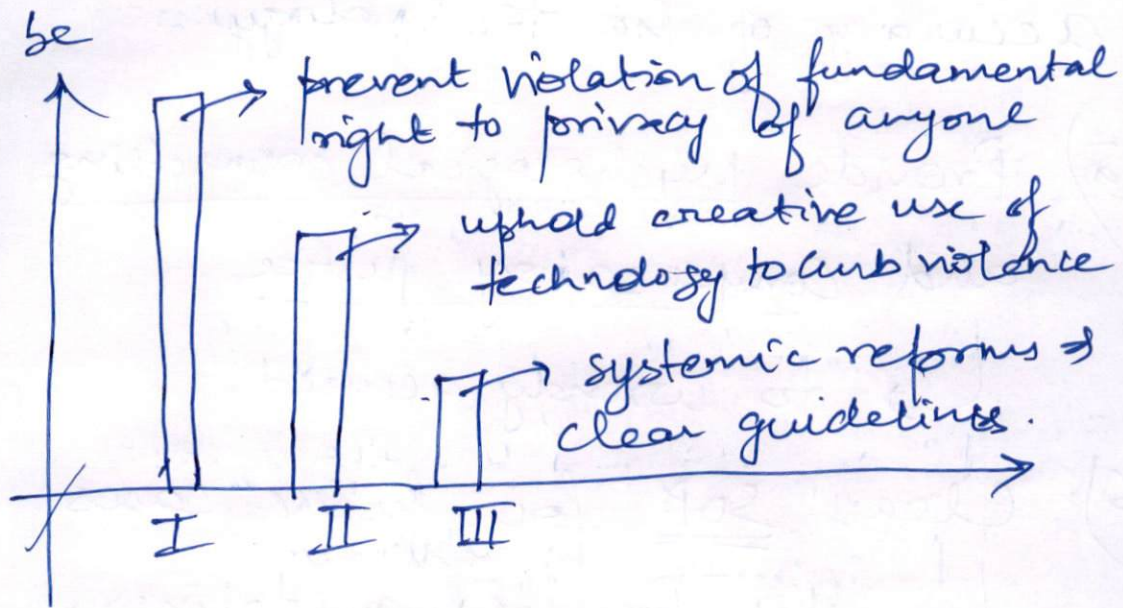 be
prevent violation of fundamental
right to privacy of anyone
uphold creative use of
technology to curb violence
systemic reforms &
clear guidelines.
I II III